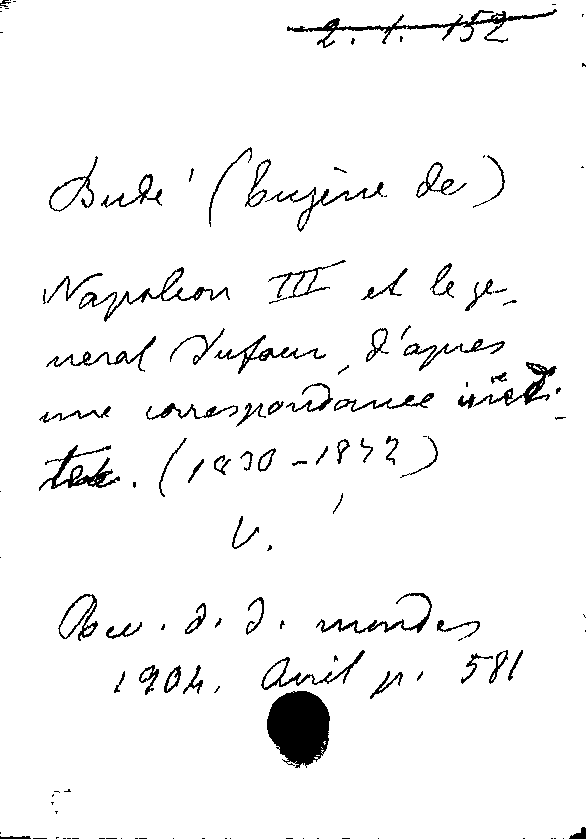 2. 1. 152
Budé (Eugène de)
Napoléon III et le gé-
néral Dufour, d'après
une correspondance inédi-
te. (1830-1872)
V.
Rev. d. d. mondes
1904. Avril p. 581